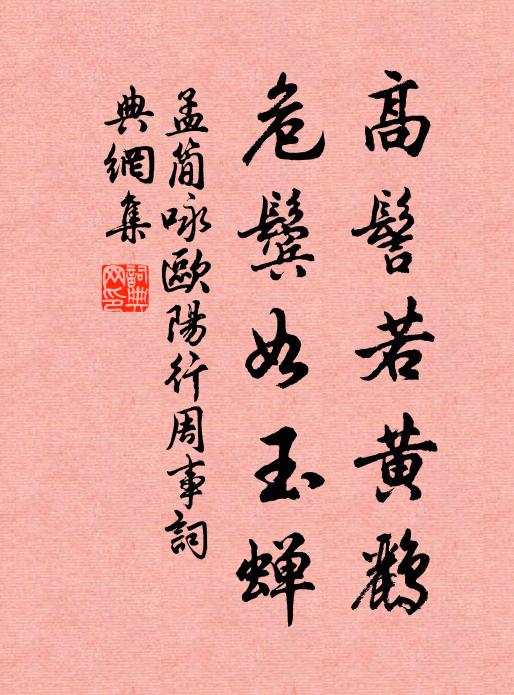 高髻若黄鸝
危鬢如玉蝉
孟简咏歐陽行周事詞
典網集
詞典網印